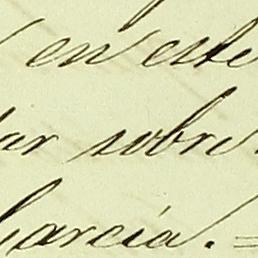 en este
ar sobre
Garcia. =